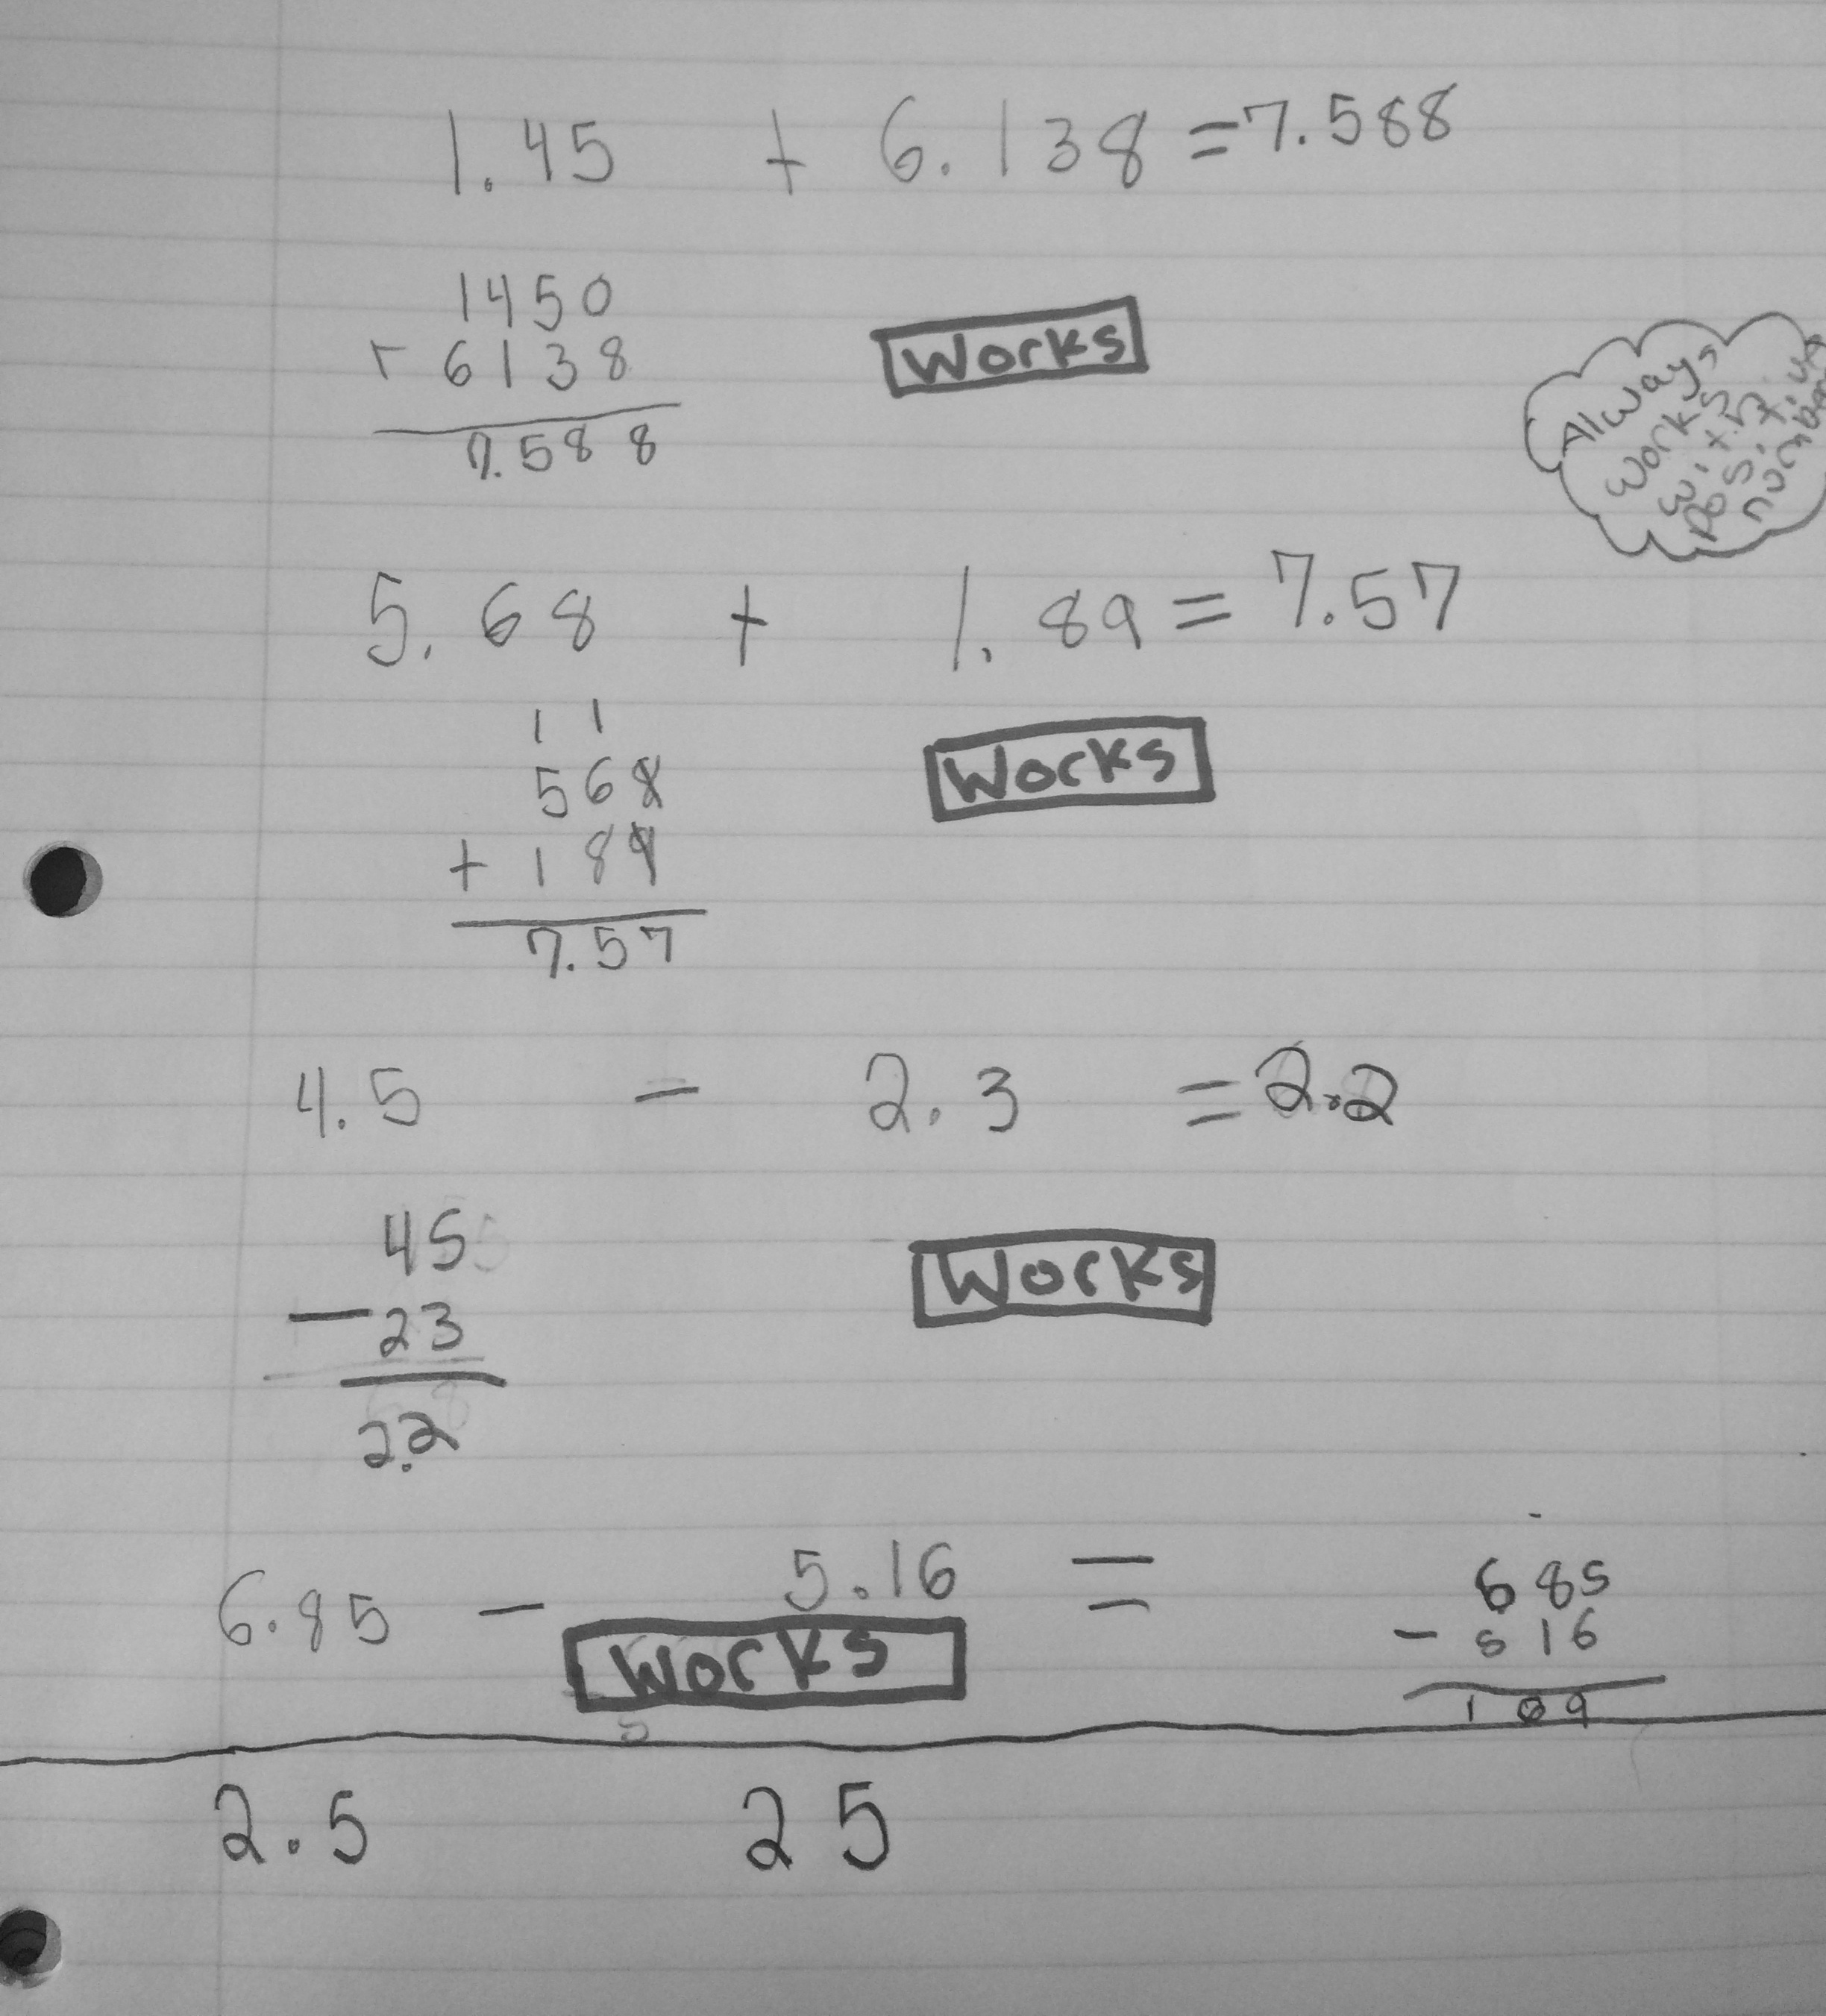 1.45 + 6.138 = 7.588
1450
+ 6138
7.588
Works
Always
works
with
positive
number
5.68 + 1.89 = 7.57
1 1
568
+ 189
7.57
Works
4.5 - 2.3 = 2.2
45
- 23
2.2
Works
6.85 - 5.16 =
Works
685
- 516
169
2.5 25